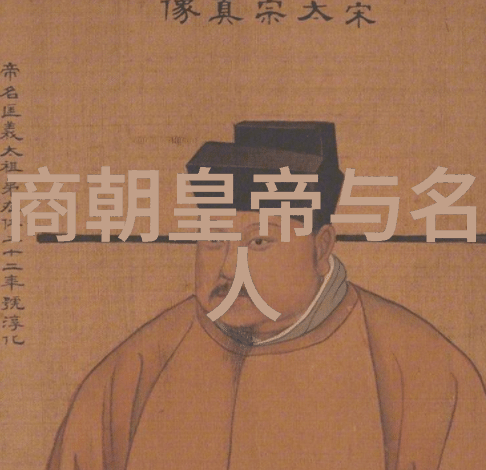 宋太宗真像
帝名匡義太祖弟在位二十二年號淳化
商朝皇帝与名
人